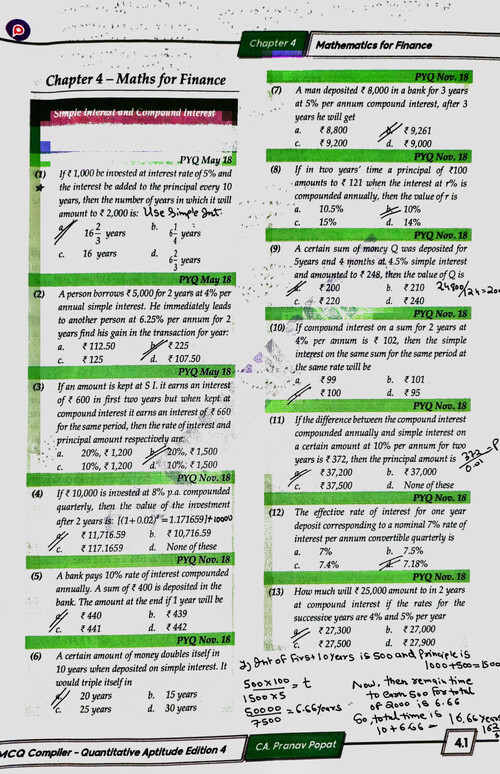 Chapter 4
Mathematics for Finance
Chapter 4 – Maths for Finance
Simple Interest and Compound Interest
PYQ May 18
(1) If ₹ 1,000 be invested at interest rate of 5% and
the interest be added to the principal every 10
years, then the number of years in which it will
amount to ₹ 2,000 is: Use Simple Int.
a. 16 2/3 years b. 6 1/4 years
c. 16 years d. 6 2/3 years
PYQ May 18
(2) A person borrows ₹ 5,000 for 2 years at 4% per
annual simple interest. He immediately leads
to another person at 6.25% per annum for 2
years find his gain in the transaction for year:
a. ₹ 112.50 b. ₹ 225
c. ₹ 125 d. ₹ 107.50
PYQ May 18
(3) If an amount is kept at S I. it earns an interest
of ₹ 600 in first two years but when kept at
compound interest it earns an interest of ₹ 660
for the same period, then the rate of interest and
principal amount respectively are.
a. 20%, ₹ 1,200 b. 20%, ₹ 1,500
c. 10%, ₹ 1,200 d. 10%, ₹ 1,500
PYQ Nov. 18
(4) If ₹ 10,000 is invested at 8% p.a. compounded
quarterly, then the value of the investment
after 2 years is: [(1+0.02)⁸ =1.171659]+10000
a. ₹ 11,716.59 b. ₹ 10,716.59
c. ₹ 117.1659 d. None of these
PYQ Nov. 18
(5) A bank pays 10% rate of interest compounded
annually. A sum of ₹ 400 is deposited in the
bank. The amount at the end if 1 year will be
a. ₹ 440 b. ₹ 439
c. ₹ 441 d. ₹ 442
PYQ Nov. 18
(6) A certain amount of money doubles itself in
10 years when deposited on simple interest. It
would triple itself in
a. 20 years b. 15 years
c. 25 years d. 30 years
PYQ Nov. 18
(7) A man deposited ₹ 8,000 in a bank for 3 years
at 5% per annum compound interest, after 3
years he will get
a. ₹ 8,800 b. ₹ 9,261
c. ₹ 9,200 d. ₹ 9,000
PYQ Nov. 18
(8) If in two years' time a principal of ₹100
amounts to ₹ 121 when the interest at r% is
compounded annually, then the value of r is
a. 10.5% b. 10%
c. 15% d. 14%
PYQ Nov. 18
(9) A certain sum of money Q was deposited for
5years and 4 months at 4.5% simple interest
and amounted to ₹ 248, then the value of Q is
a. ₹ 200 b. ₹ 210
c. ₹ 220 d. ₹ 240
PYQ Nov. 18
(10) If compound interest on a sum for 2 years at
4% per annum is ₹ 102, then the simple
interest on the same sum for the same period at
the same rate will be
a. ₹ 99 b. ₹ 101
c. ₹ 100 d. ₹ 95
PYQ Nov. 18
(11) If the difference between the compound interest
compounded annually and simple interest on
a certain amount at 10% per annum for two
years is ₹ 372, then the principal amount is 372/0.01 = P
a. ₹ 37,200 b. ₹ 37,000
c. ₹ 37,500 d. None of these
PYQ Nov. 18
(12) The effective rate of interest for one year
deposit corresponding to a nominal 7% rate of
interest per annum convertible quarterly is
a. 7% b. 7.5%
c. 7.4% d. 7.18%
PYQ Nov. 18
(13) How much will ₹ 25,000 amount to in 2 years
at compound interest if the rates for the
successive years are 4% and 5% per year
a. ₹ 27,300 b. ₹ 27,000
c. ₹ 27,500 d. ₹ 27,900
Int of First 10 years is 500 and Principle is
1000+500=1500
500×100 = t
1500×5
50000 = 6.66 years
7500
Now, then remain time
to earn 500 for total
of 2000 is 6.66
So, total time is
10+6.66 = 16.66 years
MCQ Compiler - Quantitative Aptitude Edition 4
CA. Pranav Popat
4.1